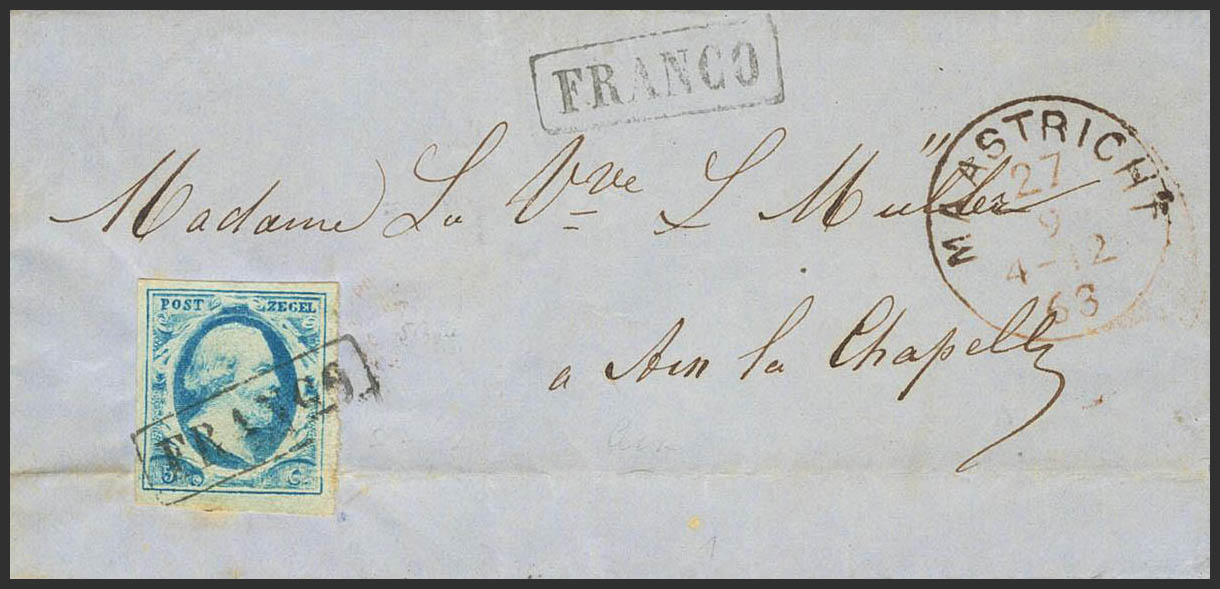 FRANCO
MAASTRICHT
27
9
4-12
63
Madame La Vve L Müller
a Aix la Chapelle
POST ZEGEL
FRANCO
5 C